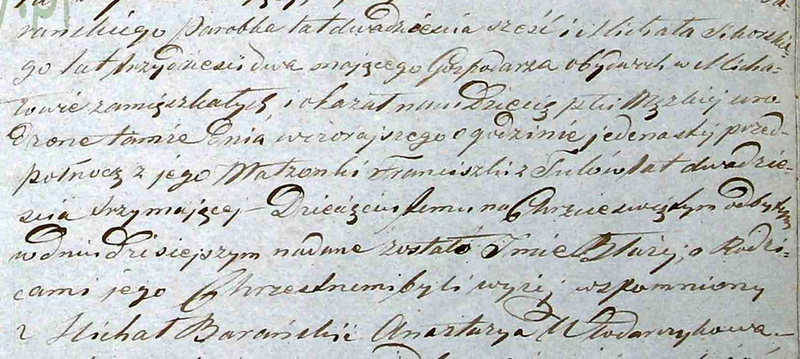 rańskiego parobka lat dwadzieścia sześć i Michała Sikorskie-
go lat trzydzieści dwa maiącego Gospodarza obydwóch w Micha-
łowie zamięszkałych i okazał nam Dziecię płci Męzkiej uro-
dzone tamże Dnia wczorajszego o godzinie jedenastej przed-
północą z jego Małżonki Franciszki z Tulów lat dwadzie-
ścia trzy mającej – Dziecięciu temu na Chrzcie świętym odbytym
w dniu dzisiejszym nadane zostało Imie Błażej, a Rodzi-
cami jego Chrzestnemi byli wyżej wspomniony
Michał Barański i Anastazya Włodarczykowa. –